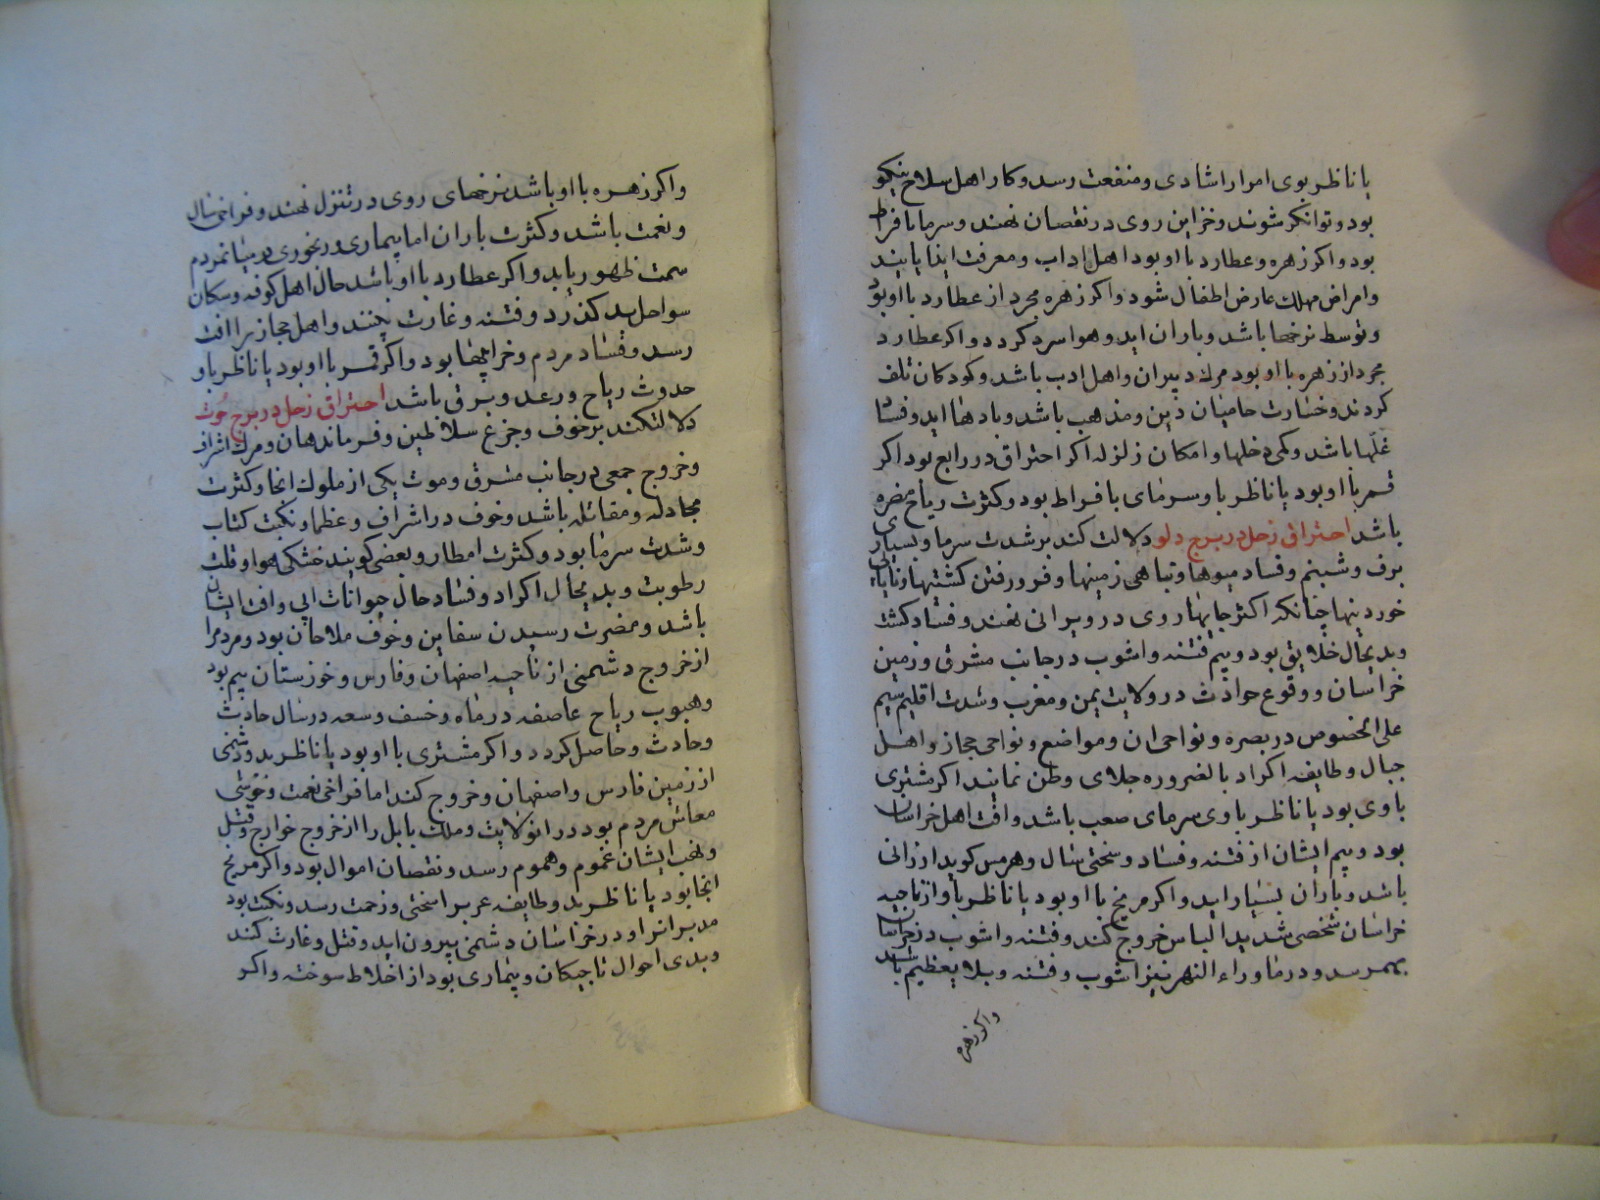 با ناظر بوی امرا را شادی و منفعت رسد و کار اهل سلاح نیکو
بود و توانگر شوند و خزاین روی در نقصان نهند و سرما بافراط
بود و اکر زهره و عطارد با او بود اهل اداب و معرفت ایذا یابند
و امراض مهلک عارض اطفال شود و اکر زهره مجرد از عطارد با او بود
و توسط نرخها باشد و باران اید و هوا سرد کردد و اکر عطارد
مجرد از زهره با او بود مرک دبیران و اهل ادب باشد و کودکان تلف
کردند و خسارت حامیان دین و مذهب باشد و بادها اید و فساد
غلها باشد و کمی دخلها و امکان زلزله اکر احتراق در رابع بود اکر
قمر با او بود یا ناظر باو سرمای بافراط بود و کثرت ریاح مضره
باشد احتراق زحل در برج دلو دلالت کند بر شدت سرما و بسیاری
برف و شبنم و فساد میوها و تباهی زمینها و فرو رفتن کشتیها و نایابی
خوردنیها چنانکه اکثر جایها روی در ویرانی نهند و فساد کشت
و بدیحال خلایق بود و بیم فتنه و اشوب در جانب مشرق و زمین
خراسان و وقوع حوادث در ولایت یمن و مغرب و شدت اقلیم سیم
علی الخصوص در بصره و نواحی ان و مواضع و نواحی حجاز و اهل
جبال و طایفه اکراد بالضروره جلای وطن نمایند اکر مشتری
با وی بود یا ناظر با وی سرمای صعب باشد و افت اهل خراسان
بود و بیم ایشان از فتنه و فساد و سختی سال و هرمس کوید ارزانی
باشد و باران بسیار اید و اکر مریخ با او بود یا ناظر باو از ناحیه
خراسان شخصی شدید الباس خروج کند و فتنه و اشوب در خراسان
بهمرسد و در ماوراء النهر نیز اشوب و فتنه و بلا یعظیم باشد
واکر زهره
و اکر زهره با او باشد نرخهای روی در تنزل نهند و فراخی سال
و نعمت باشد و کثرت باران اما بیماری و رنجوری در میان مردم
سمت ظهور یابد و اکر عطارد با او باشد حال اهل کوفه و سکان
سواحل بد کذرد و فتنه و غارت بینند و اهل حجاز را افت
رسد و فساد مردم و خرابیها بود و اکر قمر با او بود یا ناظر باو
حدوث ریاح و رعد و برق باشد احتراق زحل در برج حوت
دلالتکند بر خوف و جزع سلاطین و فرماندهان و مرک اشراف
و خروج جمعی در جانب مشرق و موت یکی از ملوک انجا و کثرت
مجادله و مقاتله باشد و خوف در اشراف و عظما و نکبت کتاب
و شدت سرما بود و کثرت امطار و بعضی کویند خشکی هوا و قلت
رطوبت و بدیحال اکراد و فساد حال حیوانات ابی و افت ایشان
باشد و مضرت رسیدن سفاین و خوف ملاحان بود و مردم را
از خروج دشمنی از ناحیه اصفهان و فارس و خوزستان بیم بود
و هبوب ریاح عاصفه در ماه و خسف و سعه در سال حادث
و حادث و حاصل کردد و اکر مشتری با او بود یا ناظر بد و دشمنی
از زمین فارس و اصفهان و خروج کند اما فراخی نعمت و خوشی
معاش مردم بود در انولایت و ملک بابل را از خروج خوارج و قتل
و نهب ایشان غموم و هموم رسد و نقصان اموال بود و اکر مریخ
انجا بود یا ناظر بد و طایفه عرب را سختی و زحمت رسد و نکبت بود
مدبرانرا و در خراسان دشمنی بیرون اید و قتل و غارت کند
و بدی احوال تاجیکان و بیماری بود از اخلاط سوخته و اکر